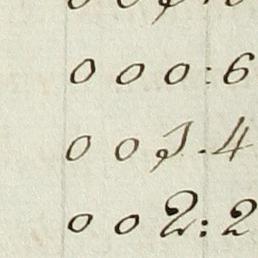 0 0 0 : 6
0 0 1 . 4
0 0 2 : 2